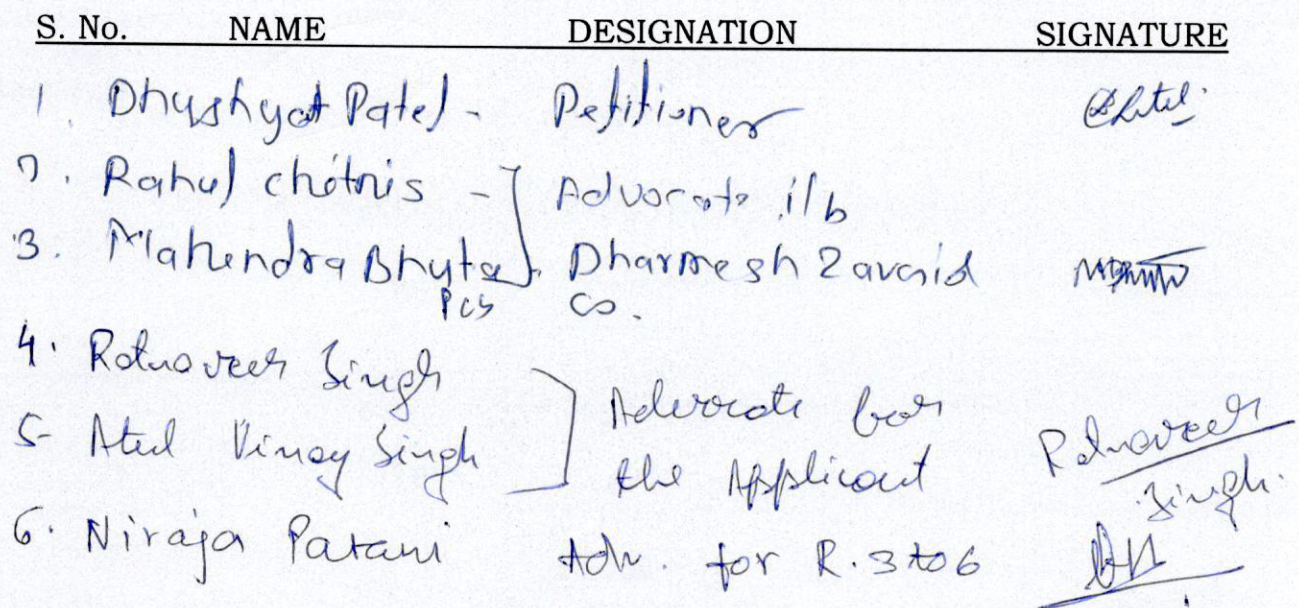 S. No. NAME DESIGNATION SIGNATURE
1. Dhyshyat Patel - Petitioner
2. Rahul chitnis - Advocate i/b
3. Mahendra Bhuta Dharmesh Zavaid
PCS CO.
4. Ratnaveer Singh
Advocate for
5- Atul Vinay Singh
the Applicant
Ratnaveer
Singh.
6. Niraja Patani Adv. for R. 3 to 6